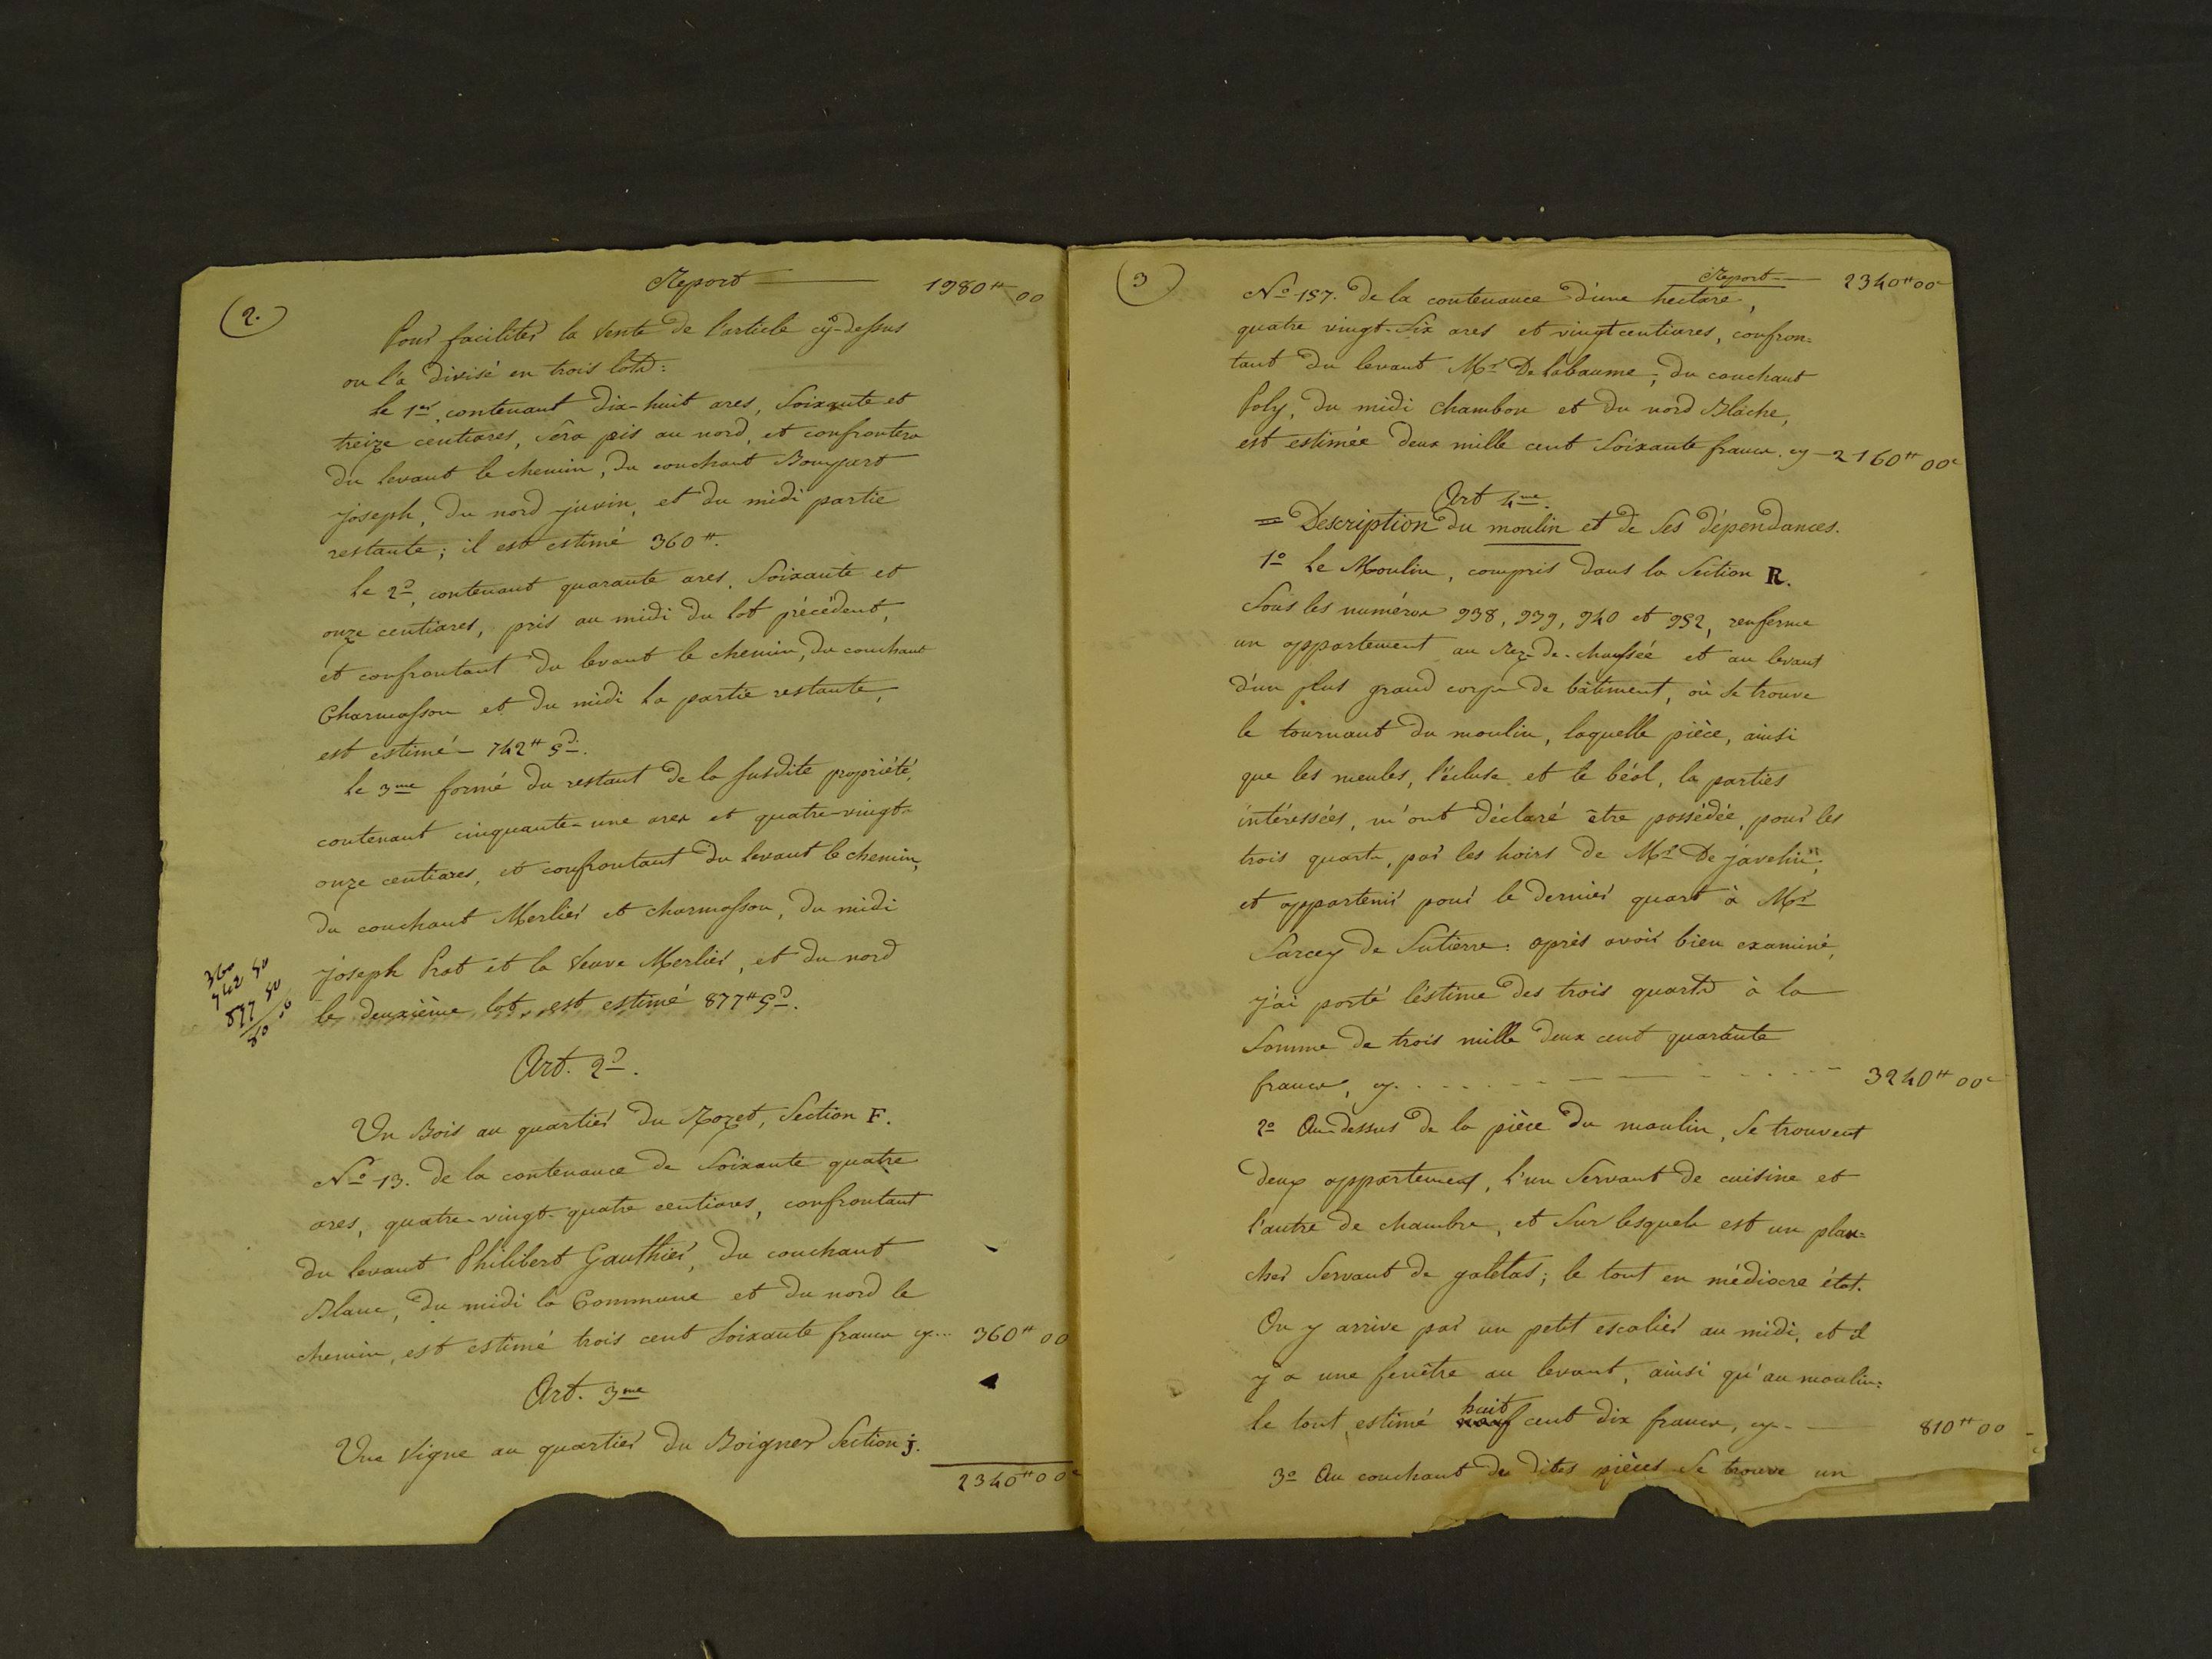 (2.)
Report 1980ᵗᵗ 00
Pour faciliter la vente de l'article cy-dessus
on l'a divisé en trois lots:
Le 1er, contenant dix-huit ares, soixante et
treize centiares, sera pis au nord, et confrontera
du levant le chemin, du couchant Bompart
joseph, du nord juvin, et du midi partie
restante; il est estimé 360ᵗᵗ.
Le 2d, contenant quarante ares, soixante et
onze centiares, pris au midi du lot précédent,
et confrontant du levant le chemin, du couchant
Charmasson et du midi la partie restante,
est estimé - 742ᵗᵗ 5d.
Le 3me formé du restant de la susdite propriété,
contenant cinquante-une ares et quatre-vingt-
onze centiares, et confrontant du levant le chemin,
du couchant Merlier et charmasson, du midi
joseph Prat et la veuve Merlier, et du nord
le deuxième lot, est estimé 877ᵗᵗ 5d.
360
742 50
877 50
80 -0
Art. 2d.
Un Bois au quartier du Rozet, section F.
No 13. de la contenance de soixante quatre
ares, quatre-vingt-quatre centiares, confrontant
du levant Philibert Gauthier, du couchant
Blanc, du midi la Commune et du nord le
chemin, est estimé trois cent soixante francs cy... 360ᵗᵗ 00
Art. 3me
Une vigne au quartier du Boigner section j.
2340ᵗᵗ 00c
(3)
Report 2340ᵗᵗ 00c
No 157. de la contenance d'une hectare,
quatre vingt-six ares et vingt centiares, confron=
tant du levant Mr De labaume, du couchant
Poly, du midi chambon et du nord Blache,
est estimée deux mille cent soixante francs. cy - 2160ᵗᵗ 00c
Art 4me.
= Description du moulin et de ses dépendances.
1o Le Moulin, compris dans la section R.
sous les numéros 938, 939, 940 et 952, renferme
un appartement au rez-de-chaussée et au levant
d'un plus grand corps de bâtiment, où se trouve
le tournant du moulin, laquelle pièce, ainsi
que les meules, l'écluse et le béal, la parties
intéressées, m'ont déclaré être possédée, pour les
trois quarts, par les hoirs de Mr De javelin;
et appartenir pour le dernier quart à Mr
Sarcey de Sutierre: après avoir bien examiné,
j'ai porté l'éstime des trois quarts à la
somme de trois mille deux cent quarante
francs, cy. 3240ᵗᵗ 00c
2o Au-dessus de la pièce du moulin, se trouvent
deux appartements, l'un servant de cuisine et
l'autre de chambre, et sur lesquels est un plan=
cher servant de galetas; le tout en médiocre état.
On y arrive par un petit escalier au midi, et il
y a une fenêtre au levant, ainsi qu'au moulin:
huit
le tout estimé neuf cent dix francs, cy 810ᵗᵗ 00
3o Au couchant des dites pièces se trouve un